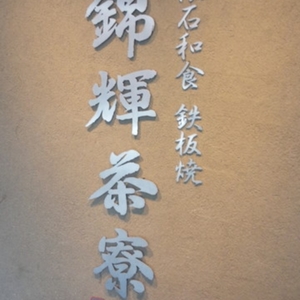 石和食 鉄板焼
錦輝茶寮